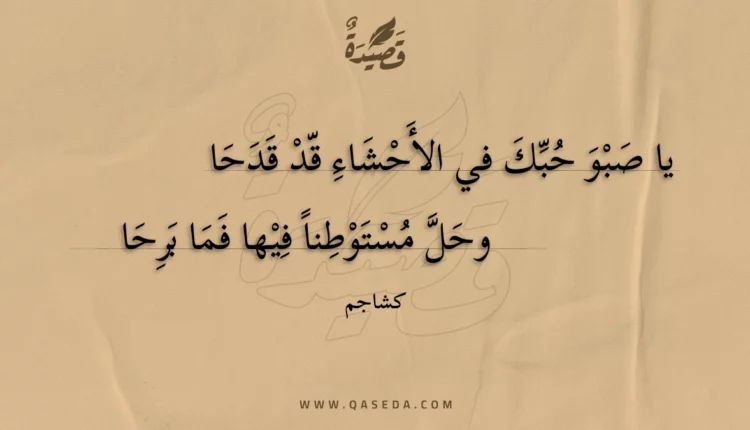 قَصِيْدَةٌ
يا صَبْوَ حُبِّكَ في الأَحْشَاءِ قّدْ قَدَحَا
وحَلَّ مُسْتَوْطِناً فِيْها فَمَا بَرِحَا
كشاجم
WWW.QASEDA.COM